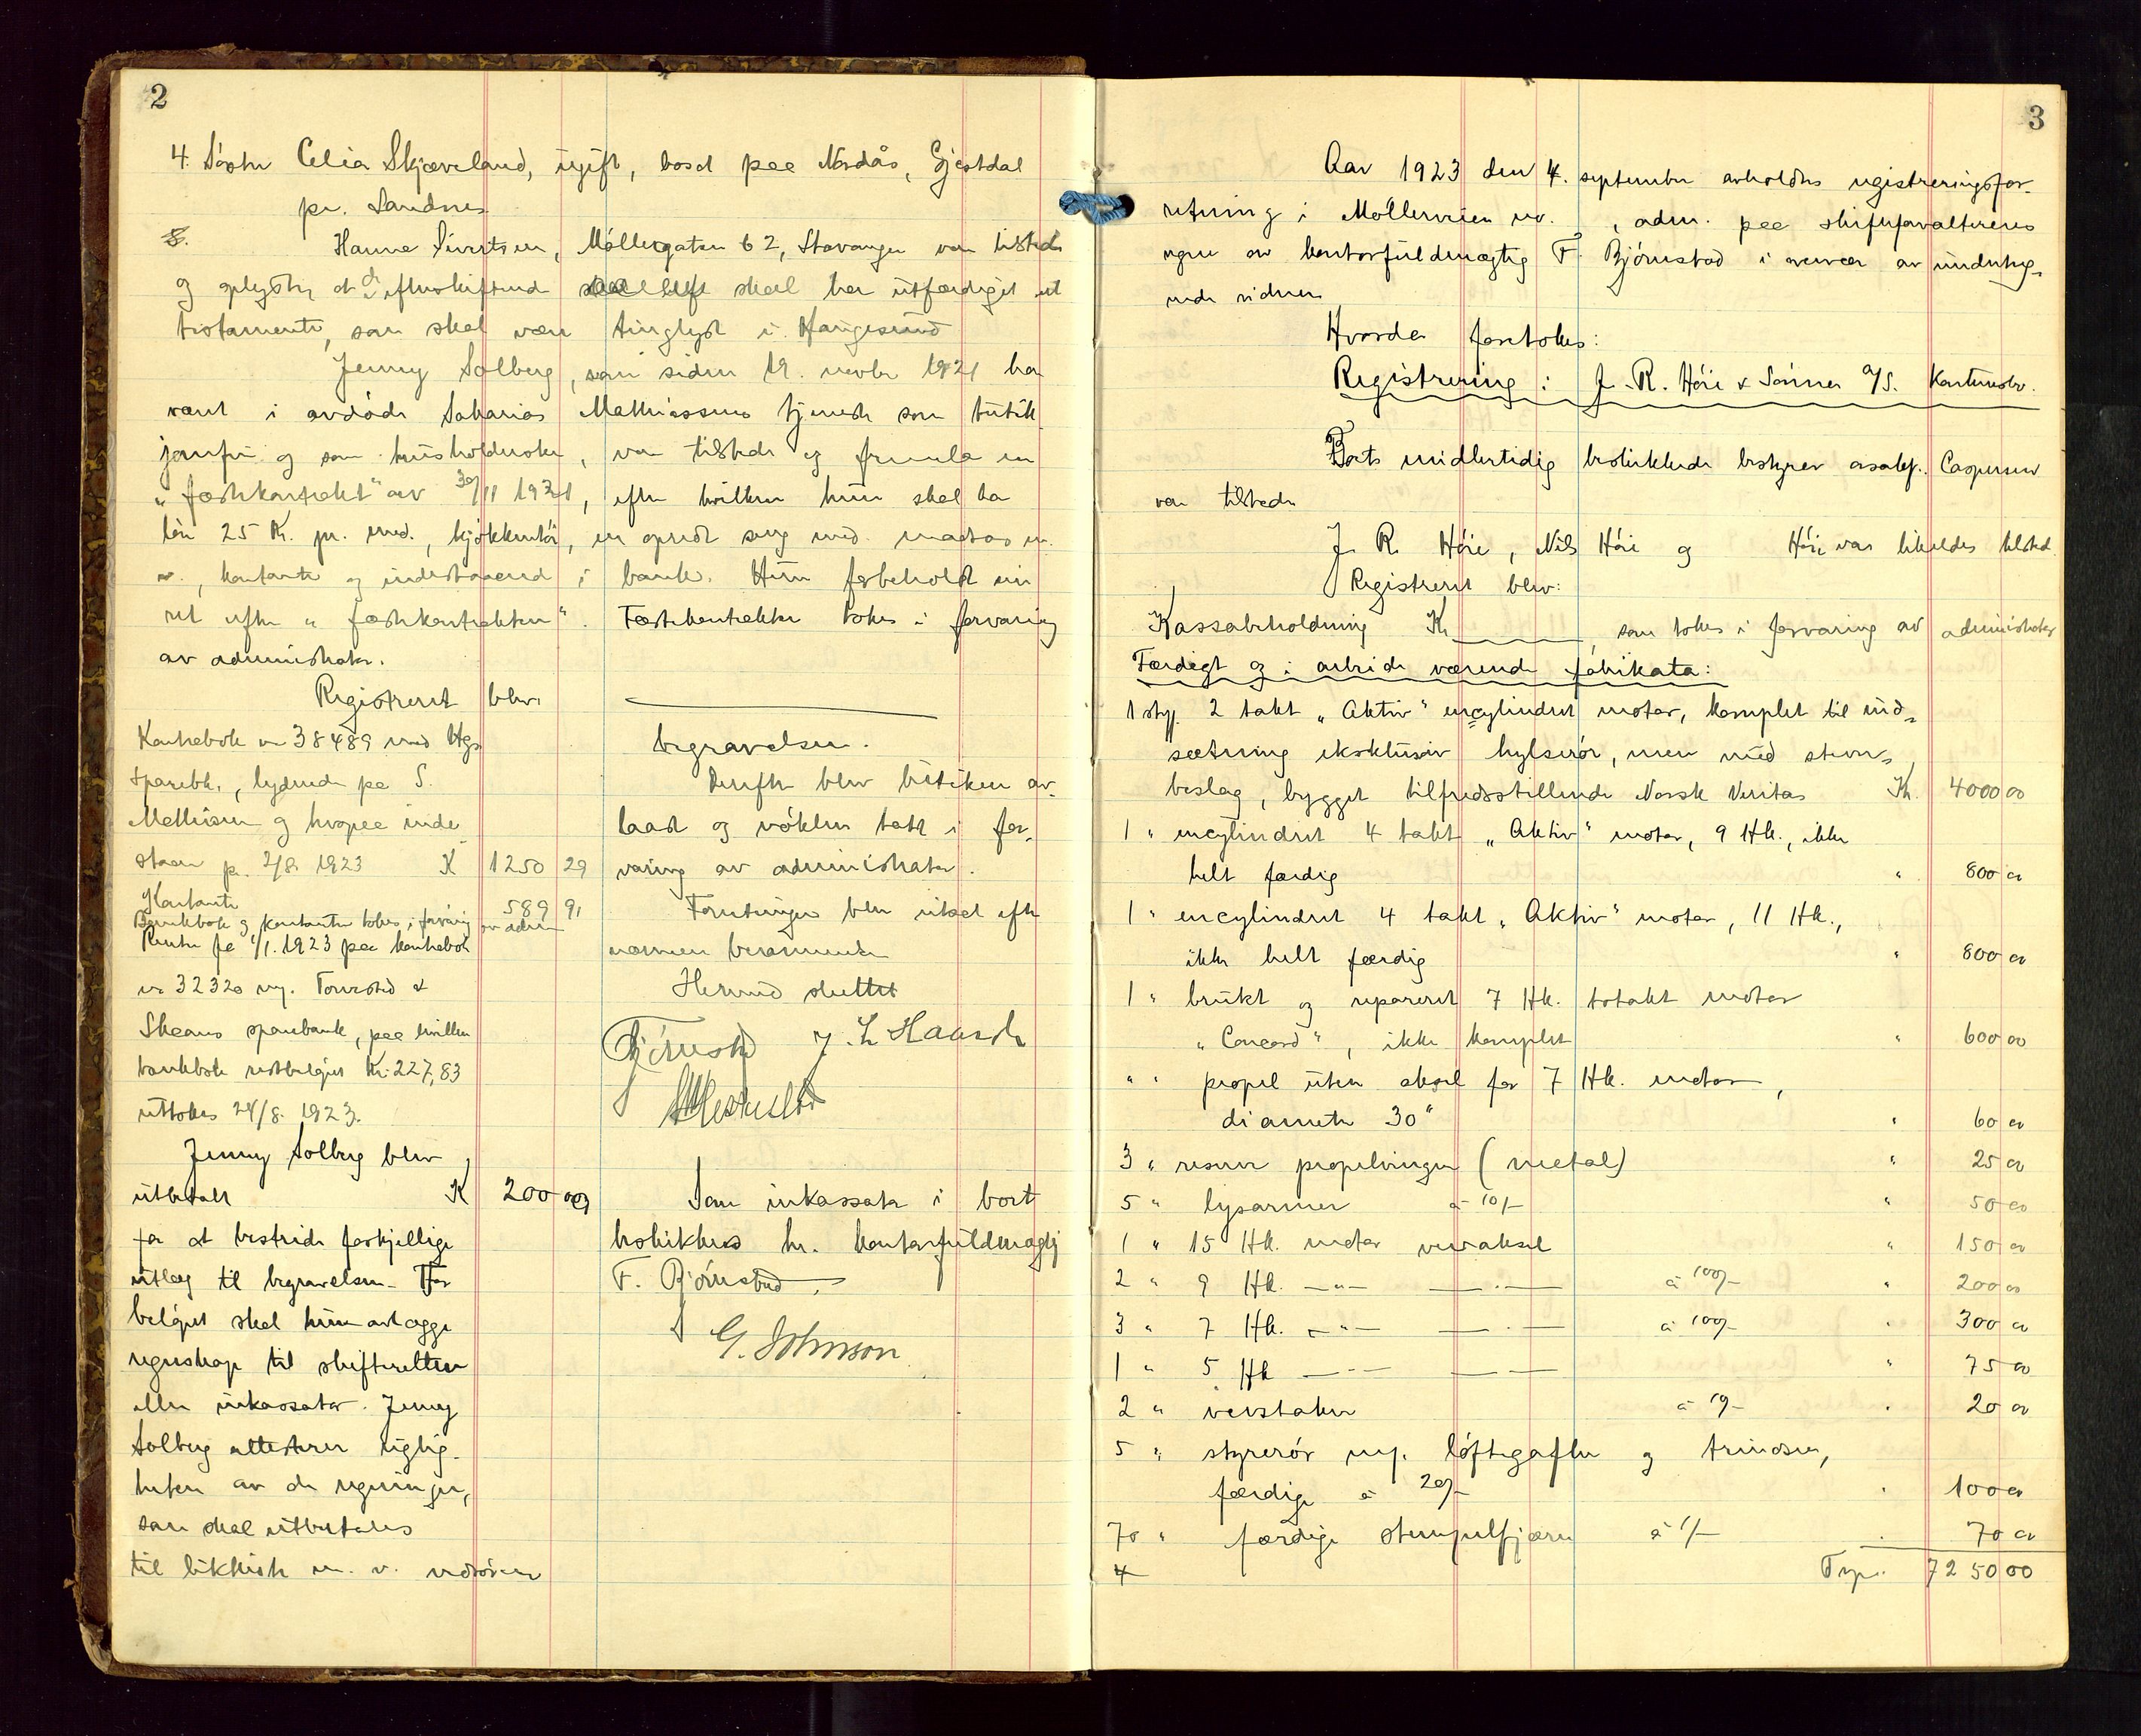 2
4. Søster Celia Skjæveland, ugift, bosat paa Nordås, Gjestdal
pr. Sandnes
Hanna Sivertsen, Møllegaten 62, Stavanger var tilstede
og oplyste at efterskiftende skal ha utfærdiget et
testamente, som skal være tinglyst i Haugesund
Jenny Solberg, som siden 19. novbr 1921 har
været i avdøde Sakarias Mathiassens tjeneste som butik-
jomfru og som husholderske, var tilstede og fremla en
"fæstekontrakt" av 30/11 1921, efter hvilken hun skal ha
løn 25 Kr. pr. mnd., kjøkkentøi, en opredt seng med madras m.
v., kontanter og indestaaende i bank. Hun forbeholdt sin
ret efter "fæstekontrakten". Fæstekontrakten tokes i forvaring
av administrator.
Registreret blev
Kontrabok nr 38489 med Hgs
sparebk., lydende på S.
Mathiesen og hvorpaa inde-
staar pr. 2/8 1923 K 1250 29
Kontanter 589 91
Bankbok og kontanter tokes i forvaring av adm
Renter fra 1/1. 1923 paa kontrabok
nr 32320 m. Torvestad &
Skaare sparebank, paa hvilken
bankbok restbeløpet Kr. 227,83
uttokes 24/8. 1923.
Jenny Solberg blev
utbetalt K 200 00
for at bestride forskjellige
utlæg til begravelsen. For
beløpet skal hun avlægge
regnskap til skifteretten
eller inkassator. Jenny
Solberg attesterer rigtig-
heten av de regninger,
som skal utbetales
til likkiste m. v. vedrørende
begravelsen.
Derefter blev butikken av-
laast og nøklen tatt i for-
varing av administrator.
Forretningen blev utsat efter
nærmere berammelse
Hermed sluttet
Bjørnstad J. L. Haaseth
Som inkassator i bort
beskikkes hr. kontorfuldmægtig
F. Bjørnstad.
G. Johnson
3
Aar 1923 den 4. september avholdtes registreringsfor-
retning i Møllerveien nr. , adm. paa skifteforvalterens
vegne av kontorfuldmægtig F. Bjørnstad i nærvær av underteg-
nede vidner
Hvorda foretokes:
Registrering i J. R. Høie & Sønner A/S. Konkursbo.
Boets midlertidig beskikkede bestyrer orsakf. Caspersen
var tilstede
J. R. Høie, Nils Høie og Høie var likeledes tilsted.
Registreret blev:
Kassabeholdning Kr , som tokes i forvaring av administrator
Færdigt og i arbeide værende fabrikata:
1 stp. 2 takt "Aktiv" encylindret motor, komplet til ind-
sætning eksklusiv hylserør, men med stevn-
beslag, bygget tilfredsstillende Norsk Veritas Kr. 4000 00
1 " encylindret 4 takt "Aktiv" motor, 9 Hk., ikke
helt færdig " 800 00
1 " encylindret 4 takt "Aktiv" motor, 11 Hk.,
ikke helt færdig " 800 00
1 " brukt og reparert 7 Hk. totakt motor
"Concord", ikke komplet " 600 00
" " propel uten aksel for 7 Hk. motor,
diameter 30" " 60 00
3 " reserve propelvinger (metal) " 25 00
5 " lysarmer à 10/- " 50 00
1 " 15 Hk. motor veivaksel " 150 00
2 " 9 Hk. —"— —"— à 100/- " 200 00
3 " 7 Hk. —"— —"— à 100/- " 300 00
1 " 5 Hk —"— —"— " 75 00
2 " veivstaker à 10/- " 20 00
5 " styrerør m. løftegafler og trindser,
færdige à 20/- " 100 00
70 " færdige stempelfjærer à 1/- " 70 00
4 Trp. 7250 00